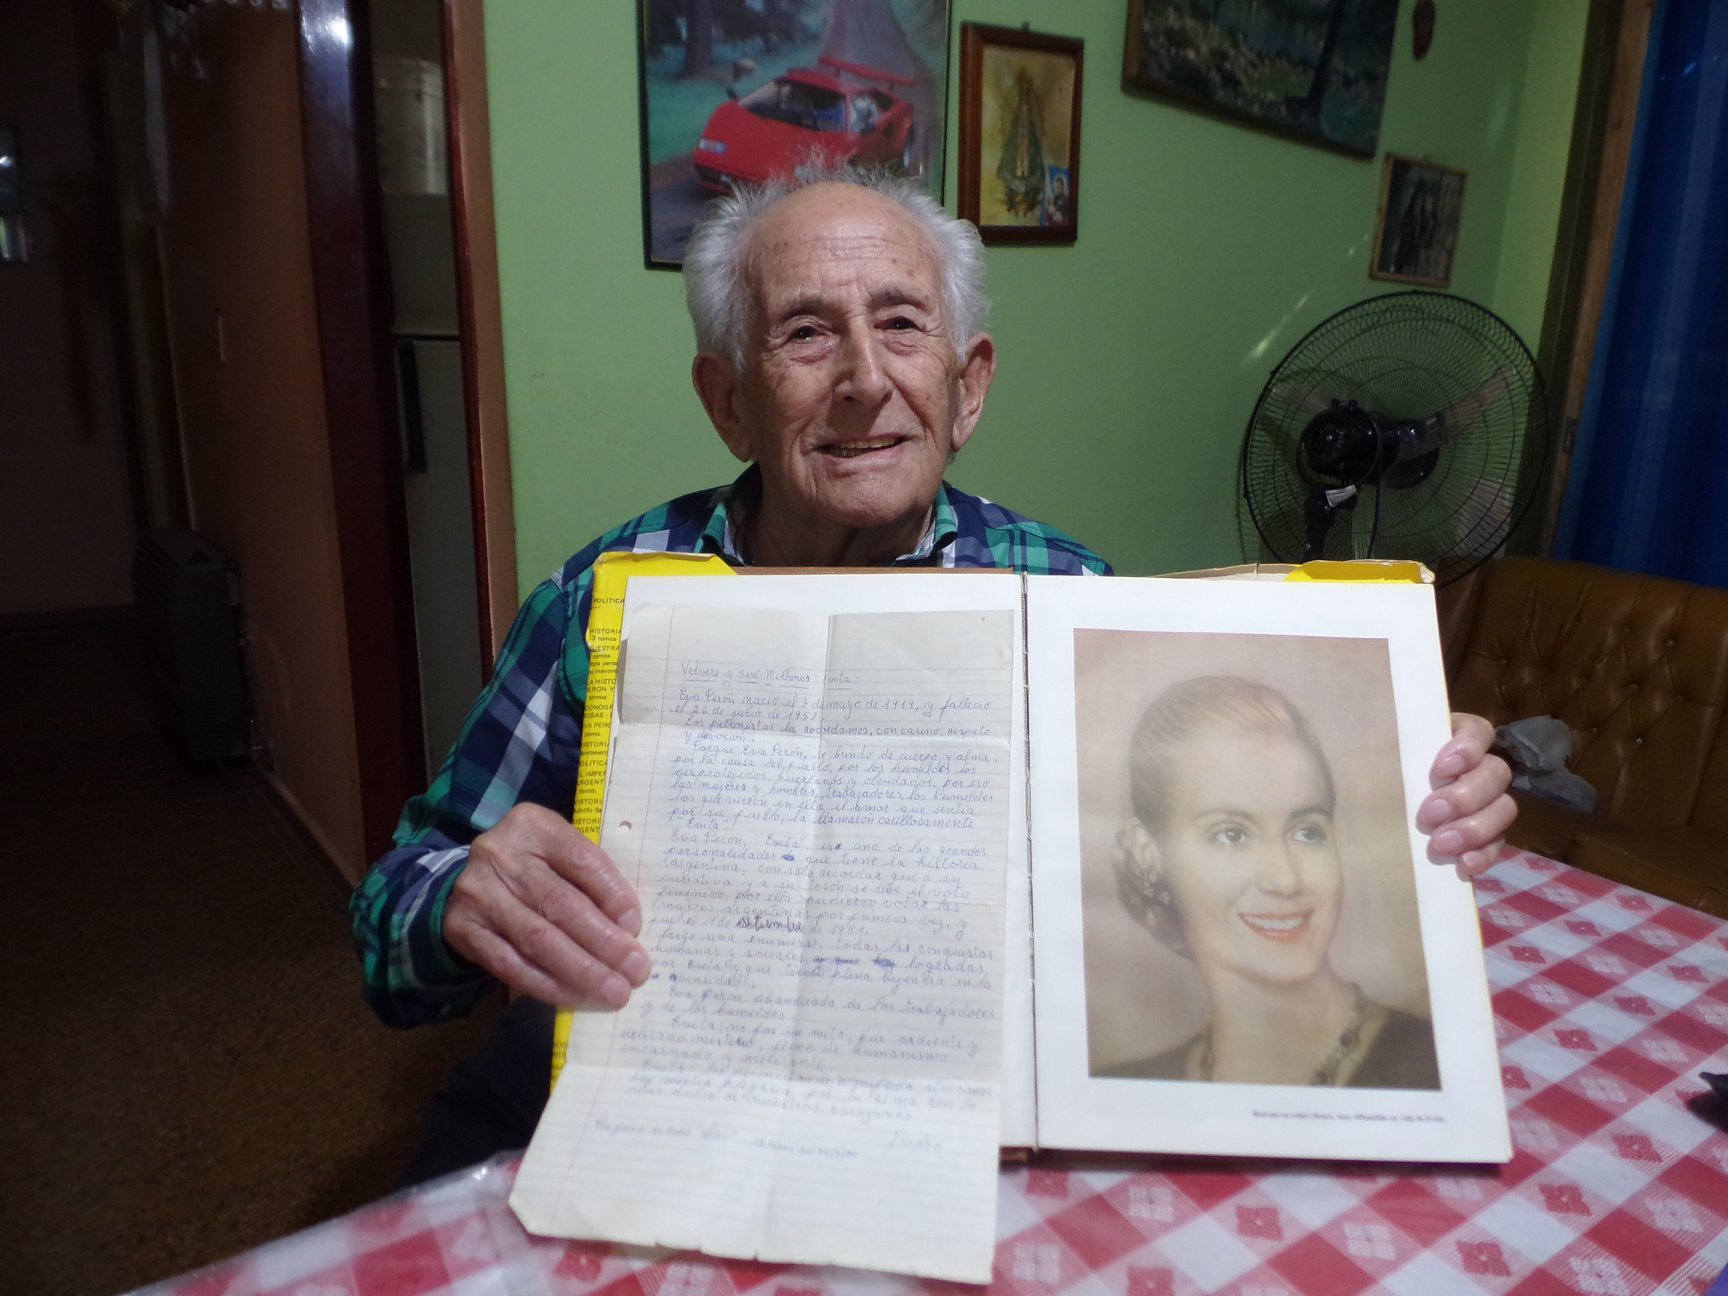 POLITICA
HISTORIA
13 tomos
NUESTRA
tomos
LA HISTO
PERON Y
tomos
ICONOG
ROSAS
EVA PERO
tomo
HISTORIA
POLITICA
EL IMPER
ARGENT
tomo.
HISTORIA
Adolfo Sa
HISTORIA
ARGENT
Volveré y Seré Millones: Evita:
Eva Perón nació el 7 de mayo de 1919, y falleció
el 26 de julio de 1952
Los peronistas la recordamos, con cariño, respeto
y devoción.
Porque Eva Perón, se brindo de cuerpo y alma,
por la causa del pueblo, por los humildes los
desprotejidos, huerfanos y olvidados, por eso
las mujeres y hombres, trabajadores, los humildes
los que vieron en ella el amor que sentia
por su pueblo, la llamaron cariñosamente
"Evita".
Eva Perón, "Evita" es una de las grandes
personalidades que tiene la historia
argentina, con solo recordar que a su
iniciativa y a su tesón se debe el voto
femenino, por ella pudieron votar las
mujeres argentinas por primera vez, y
fue el 11 de setiembre de 1951.
Largo seria enumerar, todas las conquistas
humanas y sociales, logradas
por Evita y que tienen plena vigencia en la
actualidad!.
Eva Perón abanderada de los trabajadores
y de los humildes.
Evita: no fue un mito, fue ardiente y
delicado misterio, lleno de humanismo
encarnado y militante.
Evita: los peronistas de
hoy nuestra plegaria por la
más dulce de nuestros corazones
Pedro